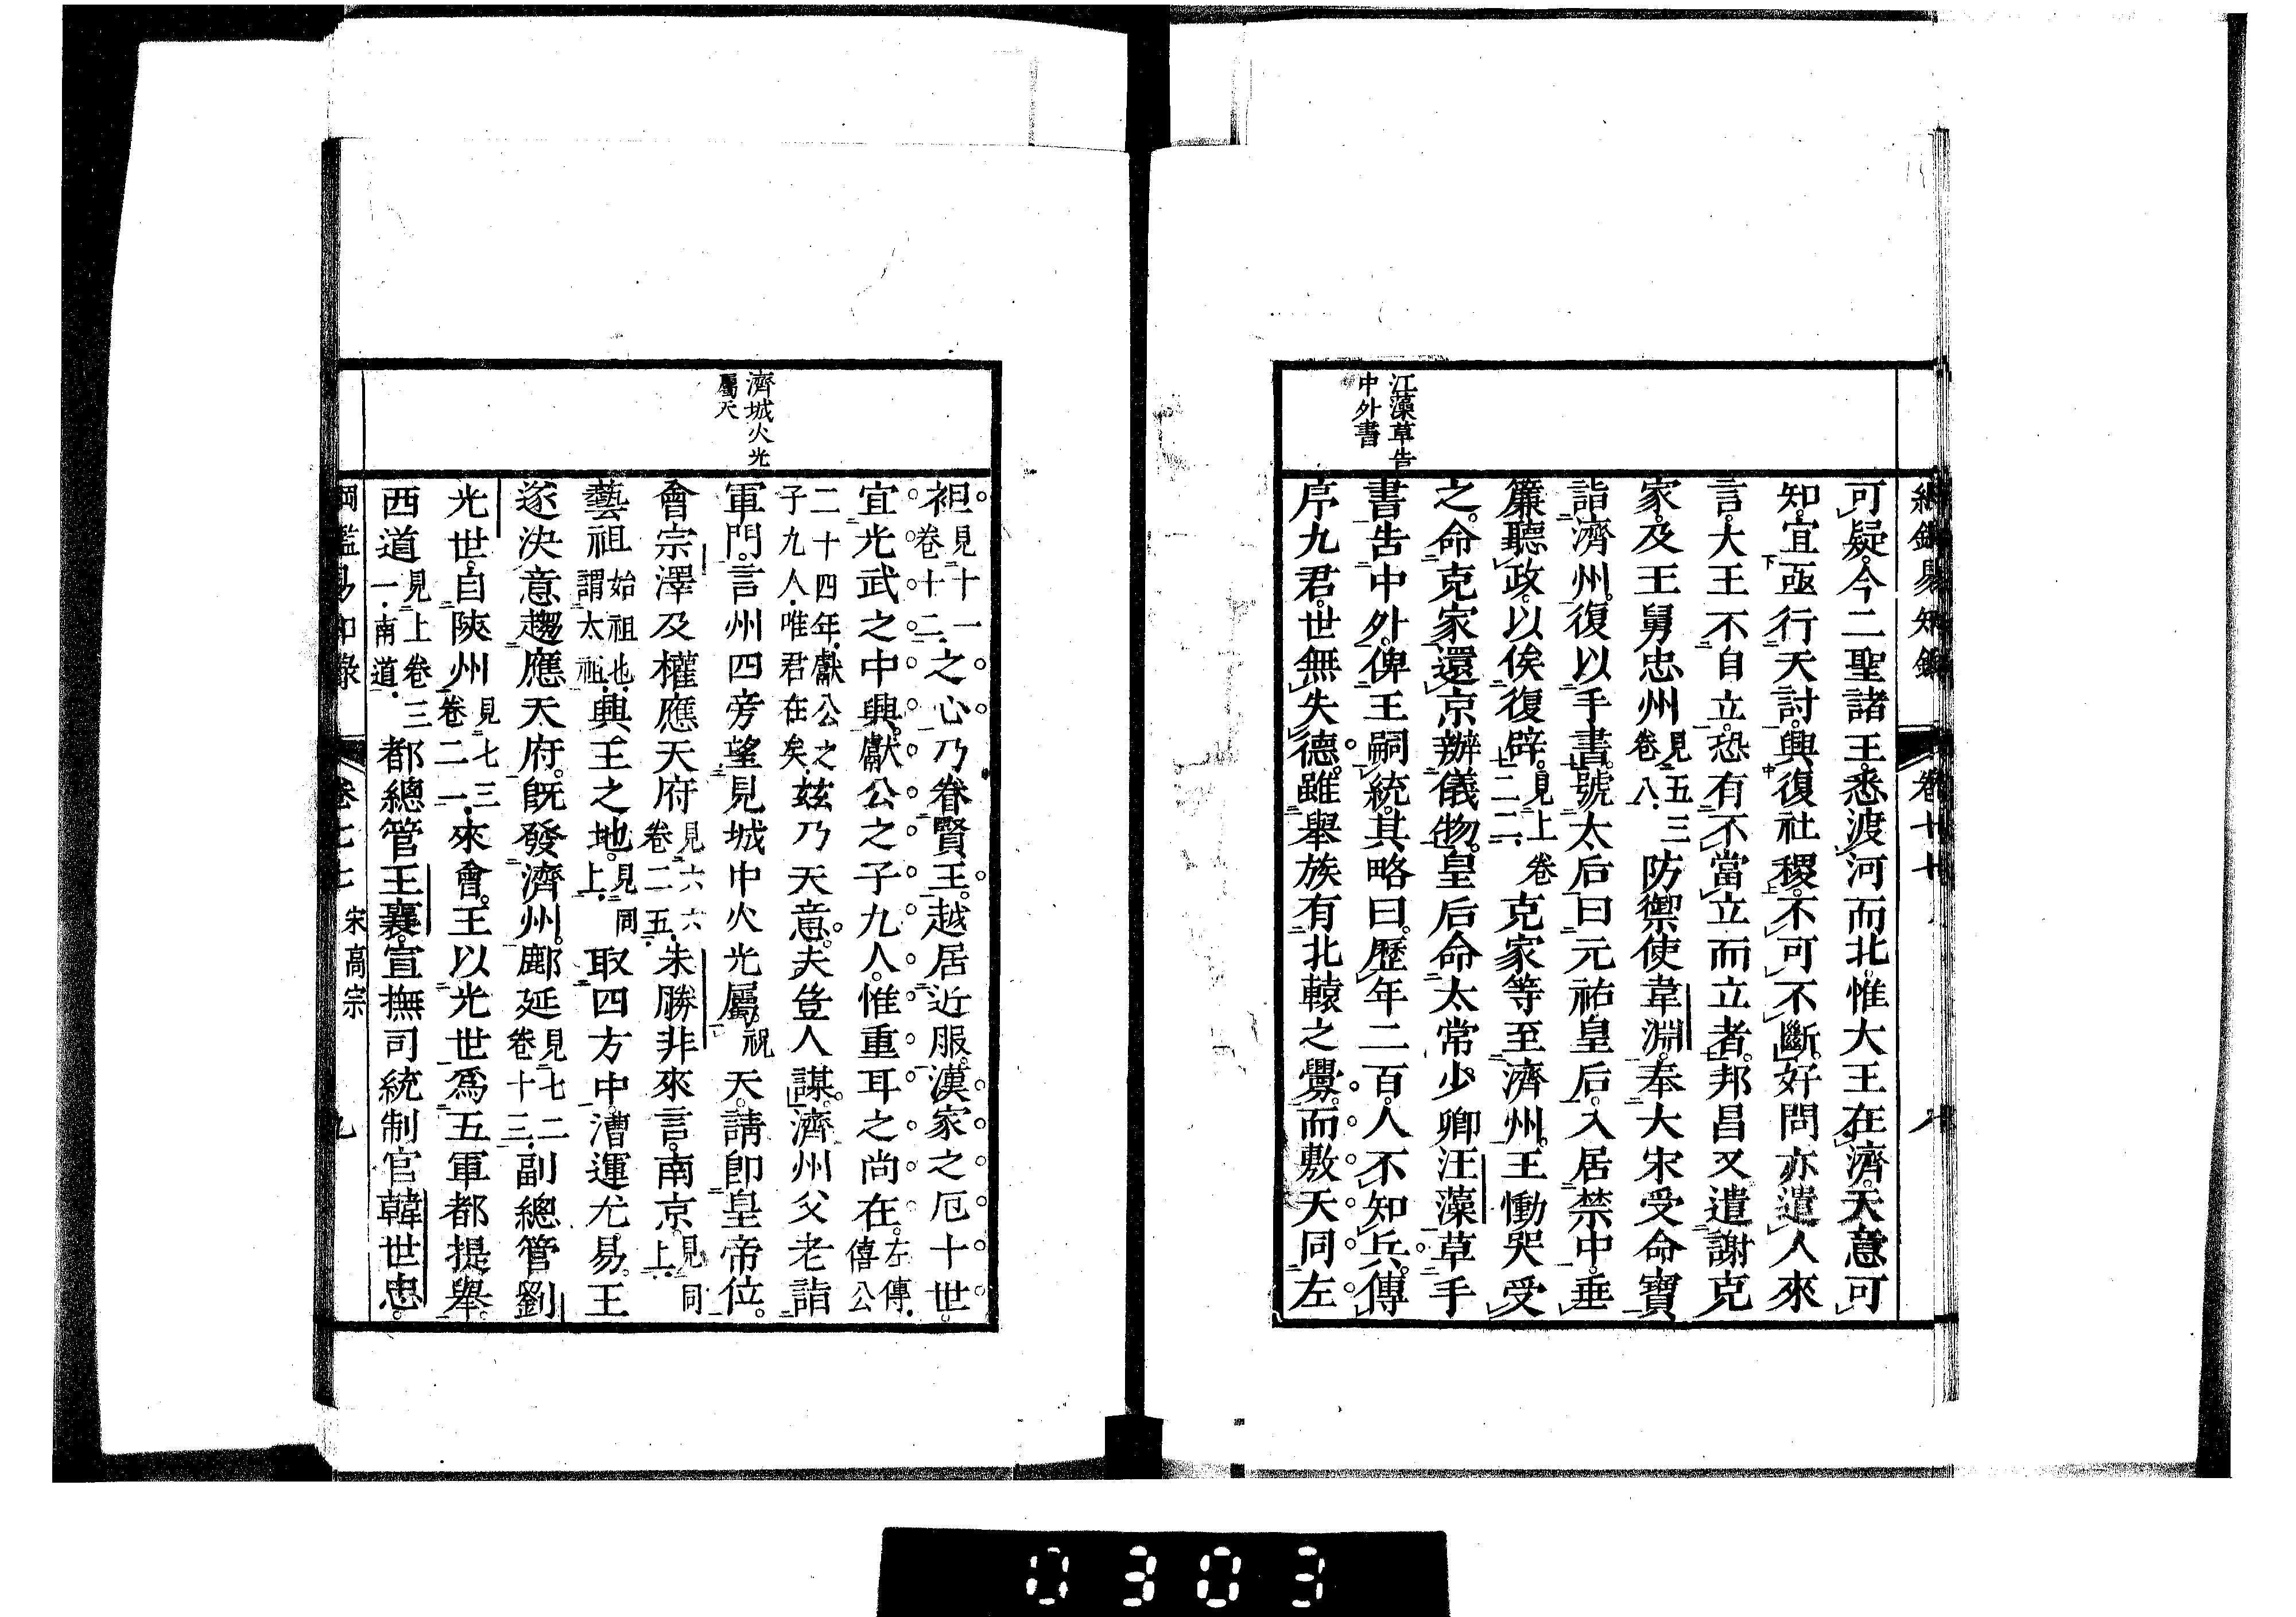 江藻草告
中外書
可疑。今二聖諸王。悉渡河而北。惟大王在濟。天意可
知。宜亟行天討。興復社稷。不可不斷。好問亦遣人來
言。大王不自立。恐有不當立而立者。邦昌又遣謝克
家。及王舅忠州見五三卷八.防禦使韋淵。奉大宋受命寶
詣濟州。復以手書。號太后曰元祐皇后。入居禁中。垂
簾聽政。以俟復辟。見上卷二二.克家等至濟州。王慟哭受
之。命克家還京辦儀物。皇后命太常少卿汪藻草手
書告中外。俾王嗣統。其略曰。歷年二百。人不知兵。傳
序九君。世無失德。雖舉族有北轅之釁。而敷天同左
濟城火光
屬天
袒見十一卷十二.之心。乃眷賢王。越居近服。漢家之厄十世。
宜光武之中興。獻公之子九人。惟重耳之尚在。左傳.僖公
二十四年.獻公之子九人.唯君在矣.玆乃天意。夫豈人謀。濟州父老詣
軍門。言州四旁望見城中火光屬祝天。請卽皇帝位。
會宗澤及權應天府見六六卷二五.朱勝非來言。南京。見同上.
藝祖始祖也.謂太祖.興王之地。見同上.取四方中。漕運尤易。王
遂決意趨應天府。旣發濟州。鄜延見七二卷十三.副總管劉
光世。自陝州見七三卷二一.來會。王以光世爲五軍都提舉。
西道見上卷三一.南道.都總管王襄。宣撫司統制官韓世忠。
宋高宗
九